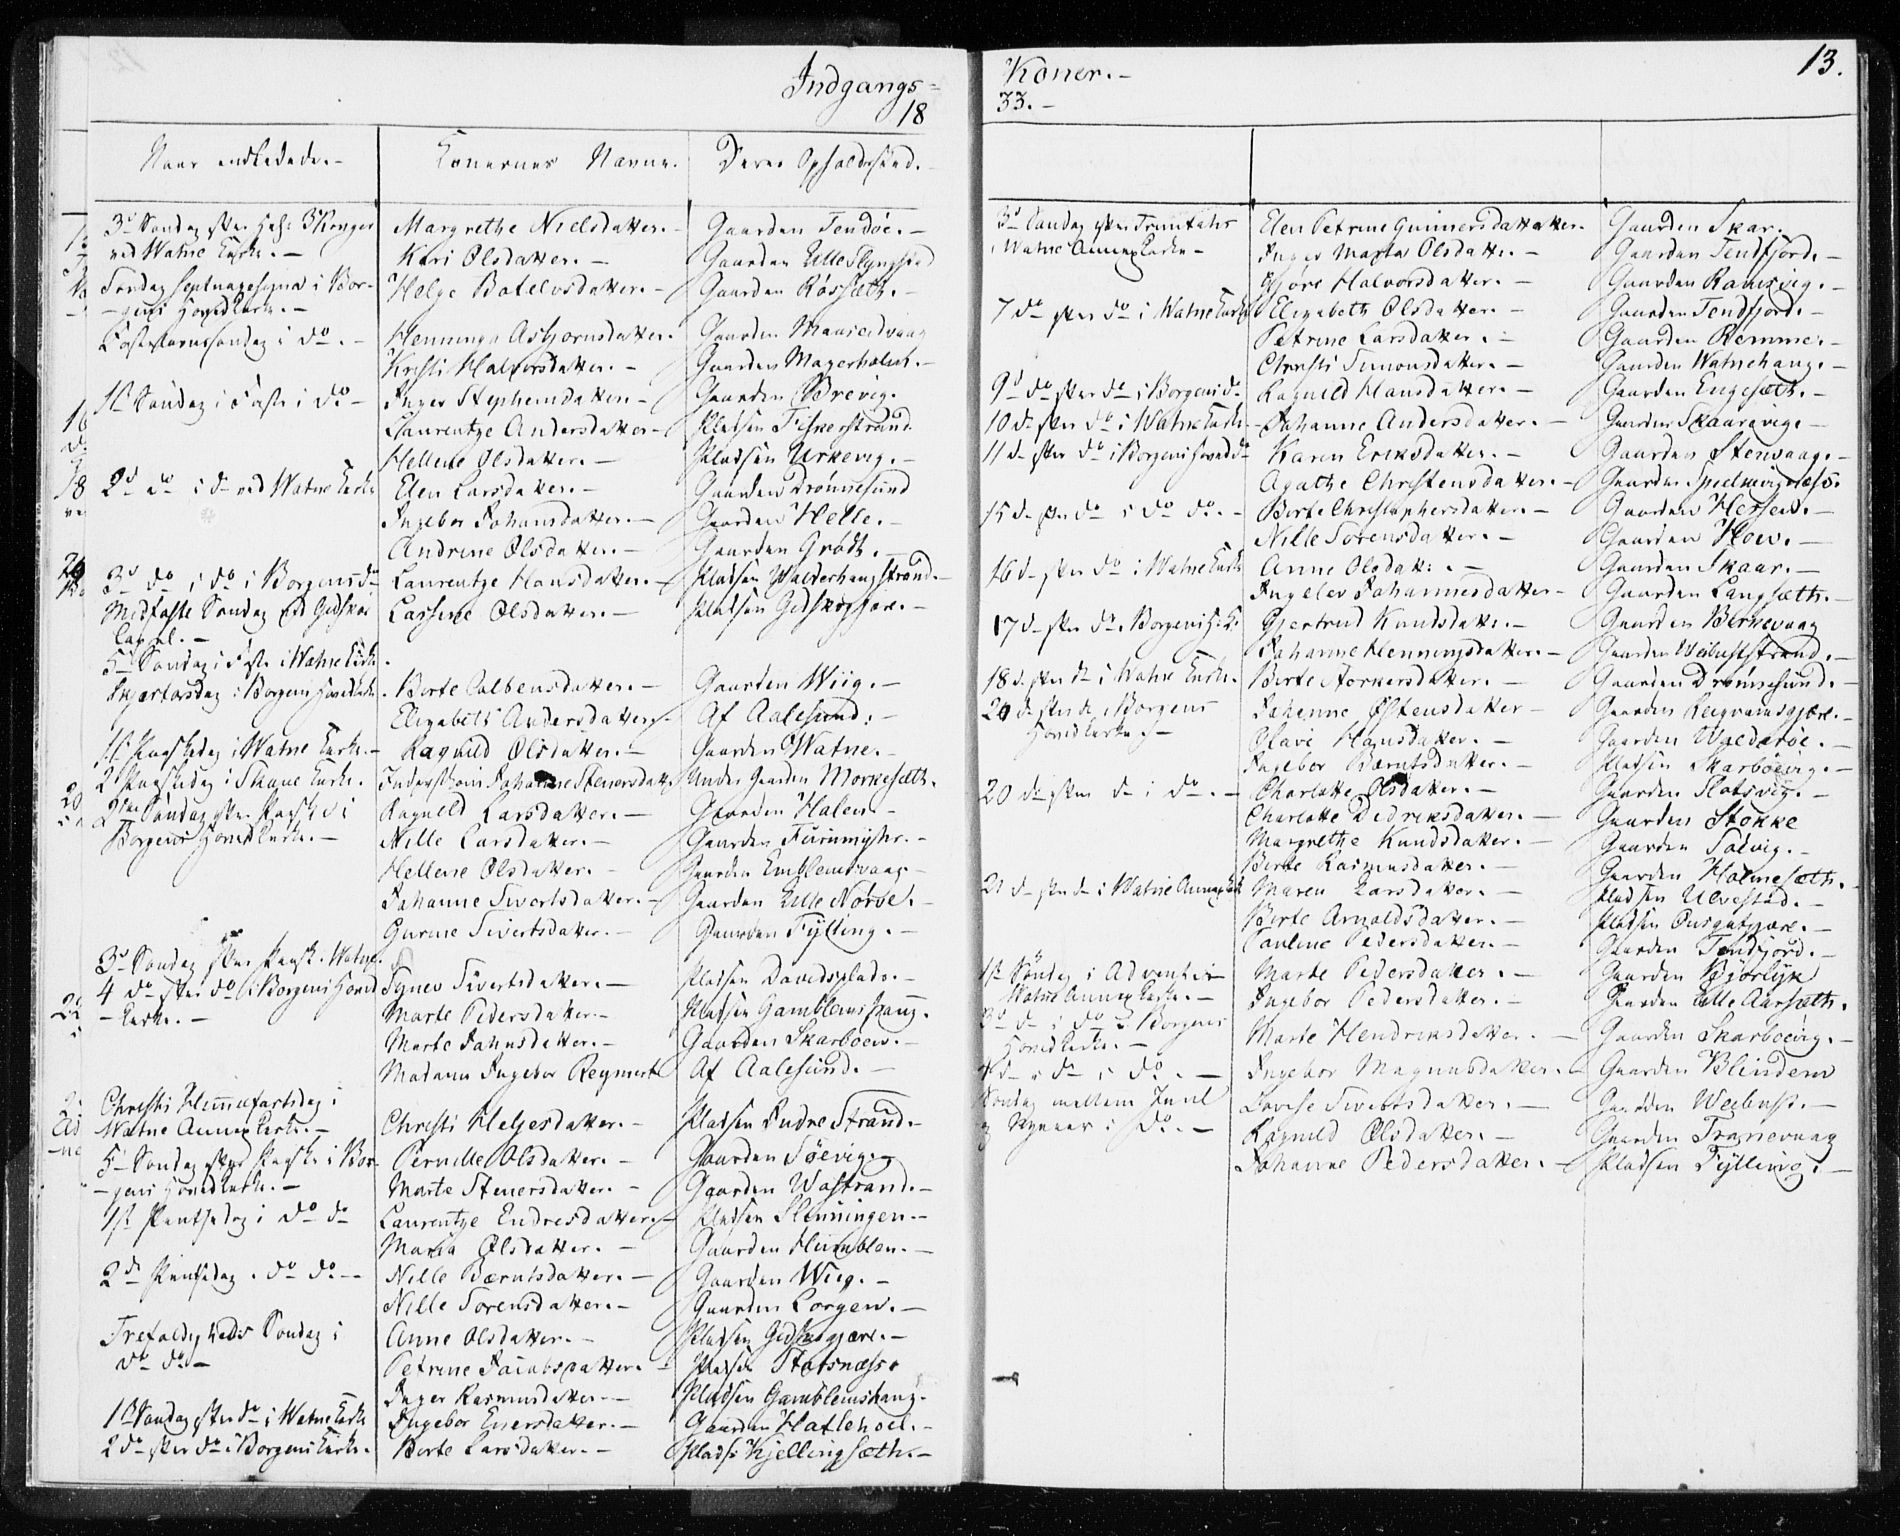 Indgangs-
18
Naar indledede.-
Konernes Navne.
Deres Opholdssted.
3d Søndag efter Hell: 3 Konger Margrethe Nielsdatter.- Gaarden Tendøe.-
ved Watne Kirke.- Kari Olsdatter.- Gaarden Lille
Søndag Septuagesyma i Bor- Helge Botelvsdatter.- Gaarden Røssæth.-
-gens Hovedkirke.-
Fastelavnssøndag i do.- Henninga Asbjornsdatter. Gaarden
Kristi Halversdatter.- Gaarden Magerholm.-
1st Søndag i Faste i do- Inger Stephensdatter- Gaarden Brevig.
Laurentze Andersdatter- Pladsen Fiskerstrand
Hellene Olsdatter.- Pladsen Urkevig.-
2d do i do ved Watne Kirke Elen Larsdatter.- Gaarden Drønnesund
Ingebor Johansdatter.- Gaarden Helle.-
Andrine Olsdatter.- Gaarden Grødt.-
3d do i do i Borgens do Laurentze Hansdatter.- Pladsen Walderhaugstrand.-
Midfaste Søndag ved Gidskøe Larsene Olsdatter.- Pladsen Gidskegjære.-
Capel.-
5te Søndag i Faste i Watne Kirke.
Skjærtorsdag i Borgens Hovedkirke. Berte Colbensdatter.- Gaarden Wiig.-
Elizabeth Andersdatter.- Af Aalesund.-
1st Paaskedag i Watne Kirke.- Ragnild Olsdatter.- Gaarden Watne.-
2 Paaskedag i Skaue Kirke. Johanne Stenersdatt. Under Gaarden Morkesæth.
2den Søndag efter Paaske i Ragnild Larsdatter.- Gaarden Halen-
Borgens Hovedkirke.- Nille Larsdatter.- Gaarden
Hellene Olsdatter.- Gaarden Emblemsvaag-
Johanne Sivertsdatter.- Gaarden Lille Nørve.-
Gurine Sivertsdatter.- Gaarden Fylling.-
3d Søndag efter Paaske. Watne.
4 do efter do i Borgens Hoved Synev Sivertsdatter.- Pladsen Davidsplads.-
-kirke.- Marte Pedersdatter.- Pladsen Gamblemshaug.
Marte Jahnsdatter.- Gaarden Skarboevi.-
Madame Ingebor Reymert Af Aalesund.-
Christi Himmelfartsdag i
Watne Annexkirke.- Christi Helgesdatter.- Pladsen Indre Strand.-
5te Søndag efter Paaske i Bor- Pernille Olsdatter.- Gaarden Søevig.-
-gens Hovedkirke.- Marte Stenersdatter.- Gaarden Wastrand.-
1st Pintsedag i do do Laurentze Endresdatter.- Pladsen Slinningen.-
Maria Olsdatter.- Gaarden Humblen.-
2den Pintsedag i do do.- Nille Bærntsdatter.- Gaarden Wiig.-
Nille Sorensdatter.- Gaarden Lorgen.-
Trefoldigheds Søndag i Anne Olsdatter.- Pladsen Gidskegjære.-
do do.- Petrine Jacobsdatter.- Pladsen Flatsnæs.
Inger Rasmusdatter.- Pladsen Gamblemshaug.
1st Søndag efter do i Watne Kirke Ingebor Enersdatter.- Gaarden Hatlehoel.-
2 do efter do i Borgens Kirke. Berte Larsdatter.- Plads: Kjellingsæth.-
13.
Koner.-
33.-
3d Søndag efter Trinitatis Elen Petrine Gunnersdatter. Gaarden Skar.
i Watne Annexkirke- Inger Marta Olsdatt.- Gaarden Tendfjord.-
Gjøre Halvorsdatter.- Gaarden Ramsvig.-
7 do efter do i Watne Kirke Elizabeth Olsdatter.- Gaarden Tendfjord.-
Petrine Larsdatter.- Gaarden Remme.-
Christi Simonsdatter.- Gaarden Watnehaug.-
9d do efter do i Borgens do Ragnild Hansdatter.- Gaarden Engesæth.-
10 do efter do i Watne Kirke Johanne Andersdatter.- Gaarden Skaarevig.-
11 do efter do i Borgens Hoved do Karen Eriksdatter.- Gaarden Stenvaag.-
Agathe Christensdatter.- Gaarden
15 do efter do i do do.- Berte Christophersdatter.- Gaarden Hessen.-
Nille Sorensdatter.- Gaarden Hoev.-
16 do efter do i Watne Kirke Anne Olsdatt:- Gaarden Skaar.-
Ingelev Johannesdatter- Gaarden Langsæth.-
17 do efter do i Borgens H: K: Gjertrud Knudsdatt.- Gaarden Børkevaag
Johanne Henningsdatter.- Gaarden Weibuststrand.-
18 do efter do i Watne Kirke. Berte Storkersdatter.- Gaarden Drønnesund.-
20 do efter do i Borgens Johanne Østensdatter- Gaarden
Hovedkirke.- Olave Hansdatter.- Gaarden Walderøe.-
Ingebor Bærntsdatter.- Pladsen Skarboevig.-
20 do efter do i do.- Charlotte Olsdatter.- Gaarden Flatsvig.-
Charlotte Didriksdatter.- Gaarden Stokke
Margrethe Knudsdatter.- Gaarden Solvig.-
Berte Rasmusdatter.- Gaarden Holmesæth.-
21 do efter do i Watne Annexkirke Maren Larsdatter.- Pladsen Ulvestad.-
Berte Arnoldsdatter.- Pladsen
Pauline Pedersdatter.- Gaarden Tendfjord.-
1st Søndag i Advent i Marte Pedersdatter.- Gaarden Bjørlyk
Watne Annexkirke.- Ingebor Pedersdatter.- Gaarden Lille Aarsæth.
3d do i do i Borgens Marte Hendriksdatter.- Gaarden Skarboevig.-
Hovedkirke.-
4 do i do i do.- Ingebor Magnusdatter.- Gaarden Blindem
Søndag mellem Juul Lovise Sivertsdatter.- Gaarden Weibust.-
og Nyeaar i do.- Ragnild Olsdatter.- Gaarden Tranevaag
Johanne Pedersdatter.- Pladsen Fylling.-